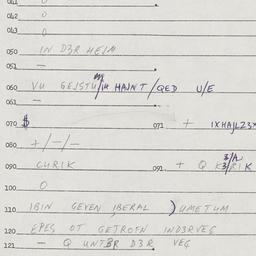 041 0
042 0
043 0
050 IN D3R HEJM
051 —
060 VU GEJSTU HAJNT /QED U/E
061 —
070 $ 071 + IXHAJLZ3X
080 +/-/-
090 CURIK 091 + Q K3RIK
100 0
110 IBIN GEVEN IBERAL )UMETUM
120 EPES OT GETROFN IND3RVEG
121 — Q UNT3R D3R VEG